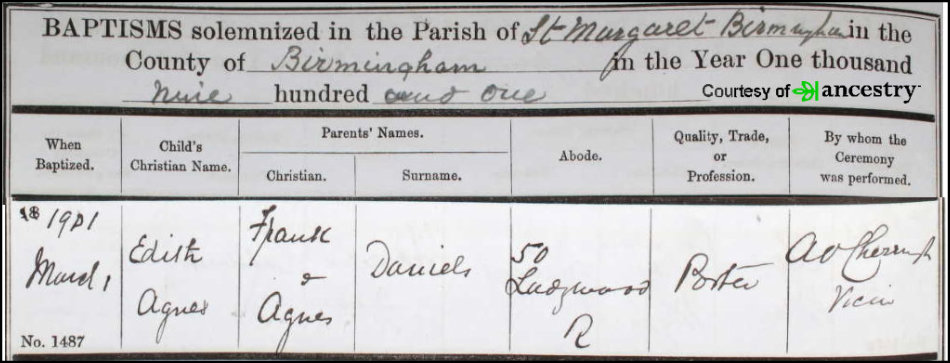 BAPTISMS solemnized in the Parish of St Margaret Birmingham in the
County of Birmingham in the Year One thousand
Nine hundred and one
Courtesy of ancestry
When Baptized.
Child's Christian Name.
Parents' Names.
Christian.
Surname.
Abode.
Quality, Trade, or Profession.
By whom the Ceremony was performed.
18 1901
March 1
Edith
Agnes
Frank
&
Agnes
Daniels
50
Ladywood
R
Porter
Vicar
No. 1487